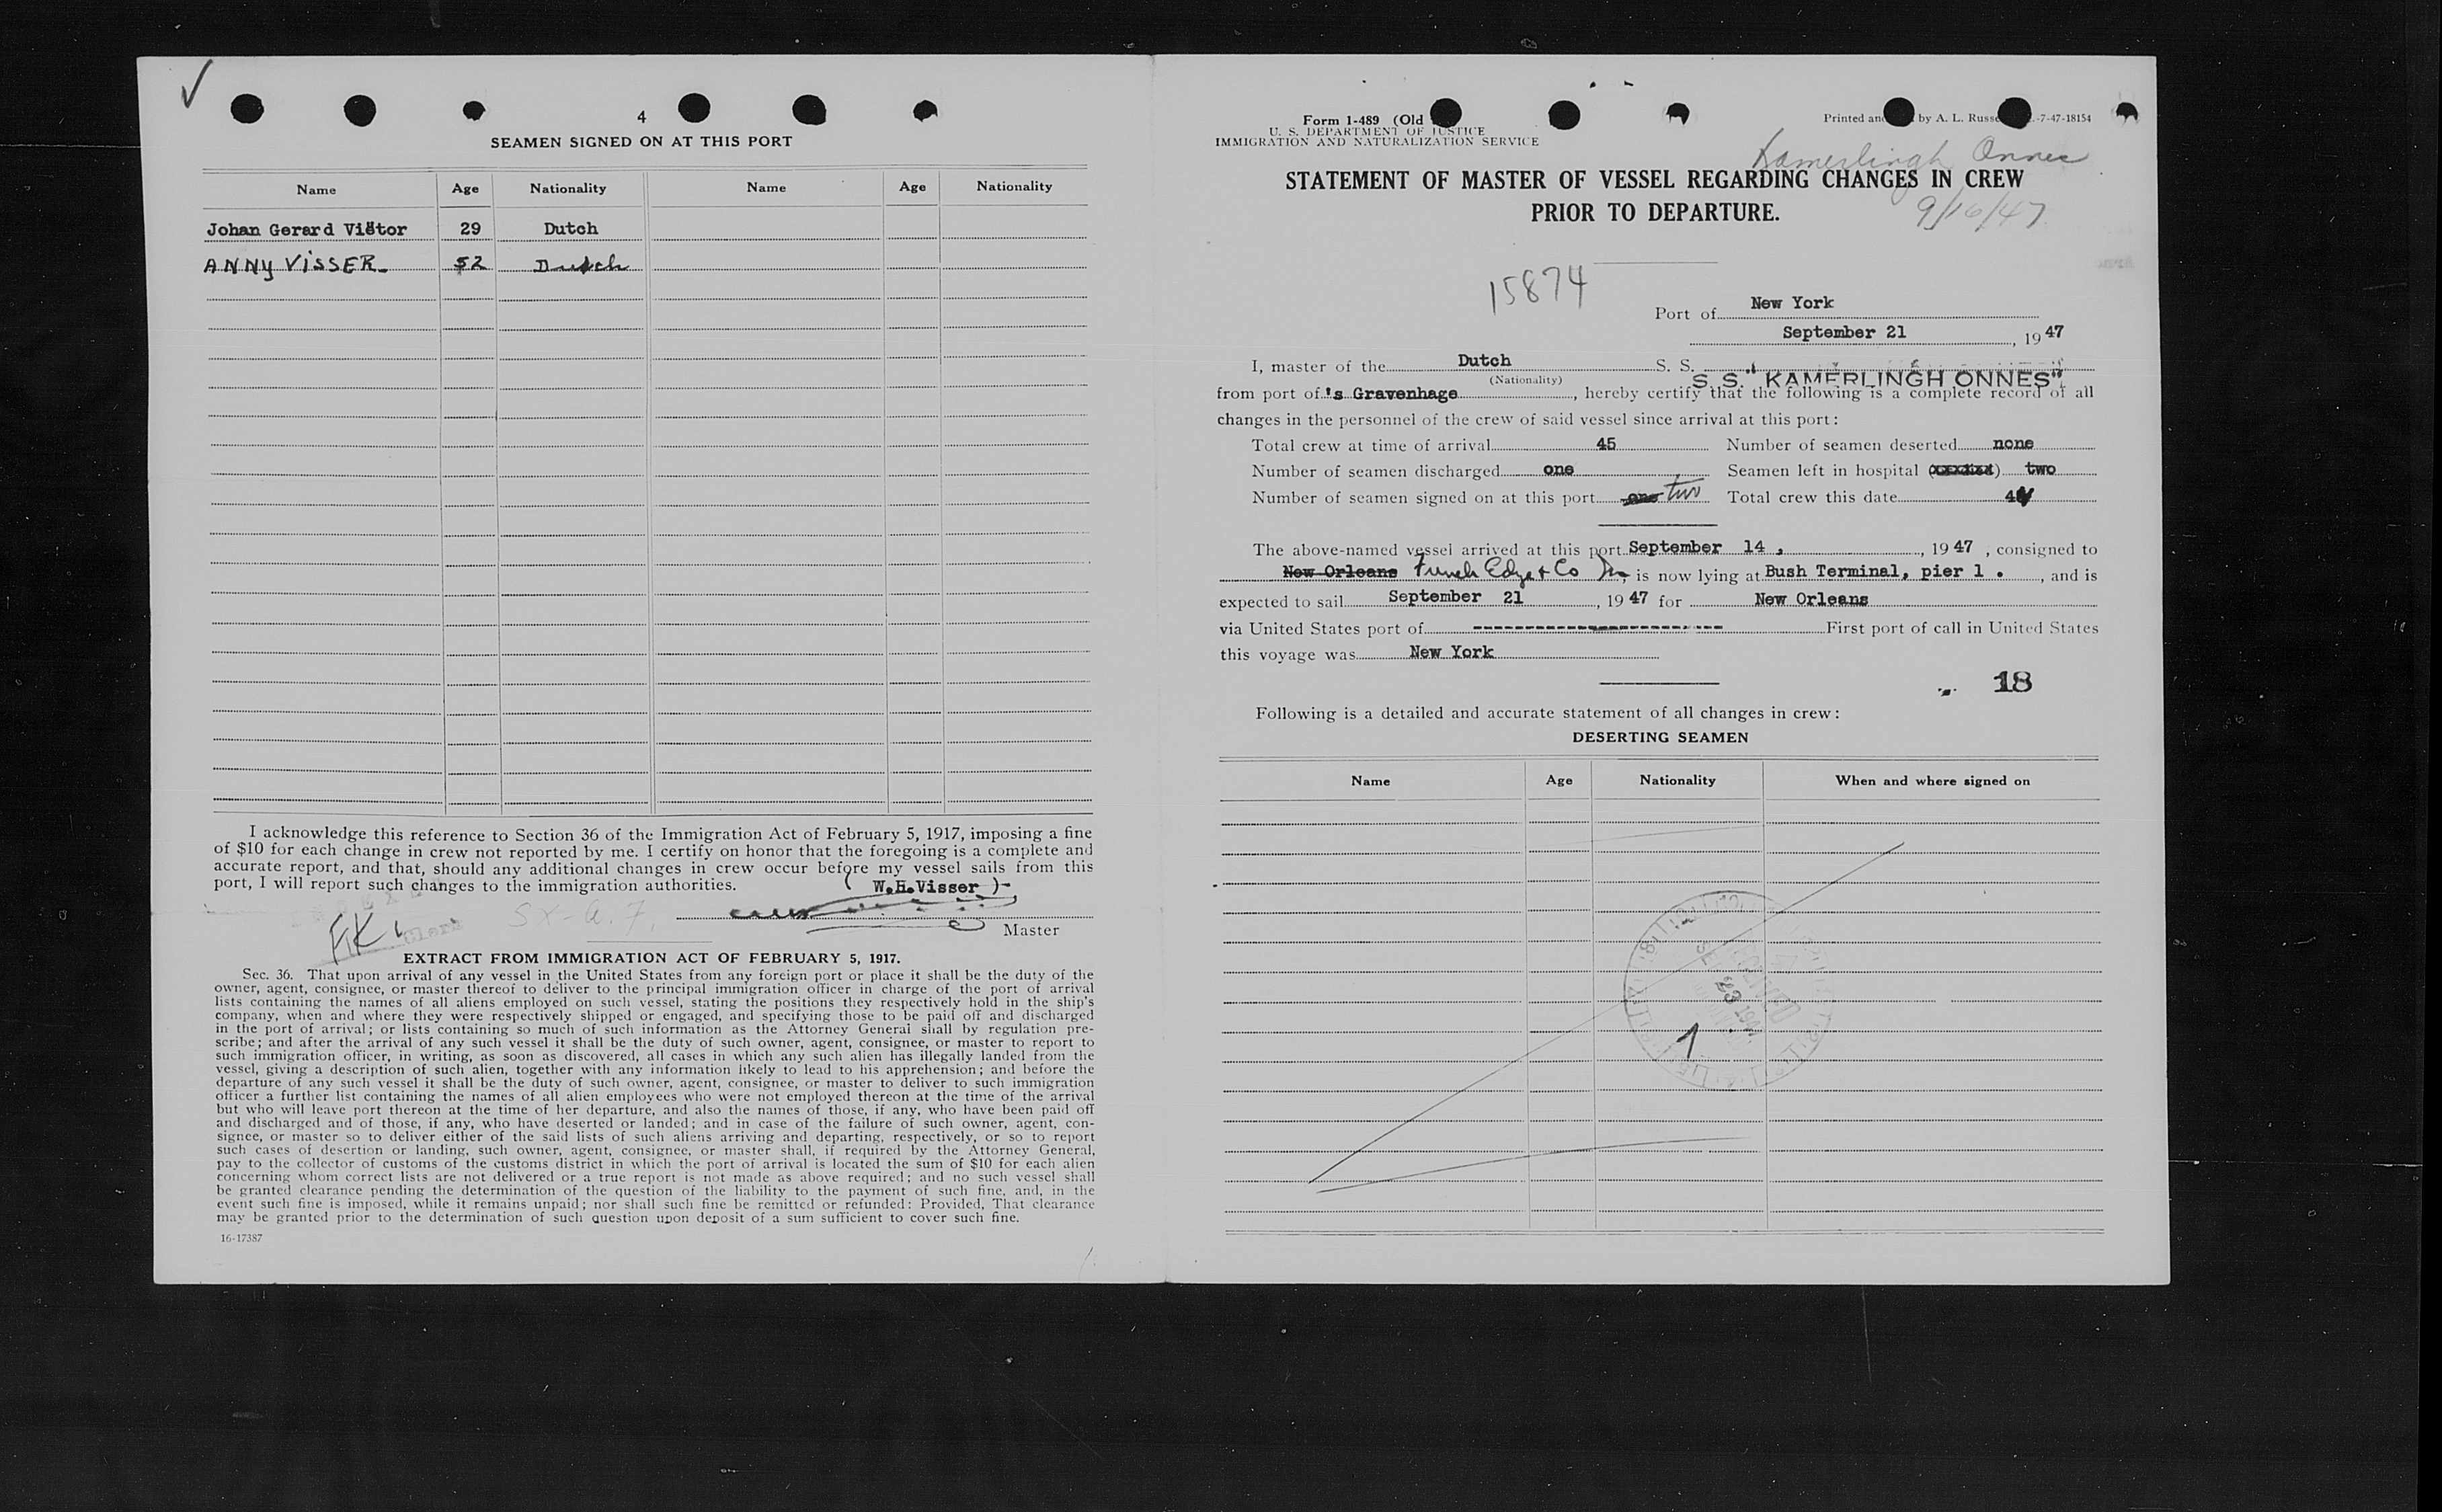 4
SEAMEN SIGNED ON AT THIS PORT
Name Age Nationality Name Age Nationality
Johan Gerard Viëtor 29 Dutch
ANNY VISSER 52 Dutch
I acknowledge this reference to Section 36 of the Immigration Act of February 5, 1917, imposing a fine
of $10 for each change in crew not reported by me. I certify on honor that the foregoing is a complete and
accurate report, and that, should any additional changes in crew occur before my vessel sails from this
port, I will report such changes to the immigration authorities. ( W.H.Visser )-
Clerk
Master
EXTRACT FROM IMMIGRATION ACT OF FEBRUARY 5, 1917.
Sec. 36. That upon arrival of any vessel in the United States from any foreign port or place it shall be the duty of the
owner, agent, consignee, or master thereof to deliver to the principal immigration officer in charge of the port of arrival
lists containing the names of all aliens employed on such vessel, stating the positions they respectively hold in the ship's
company, when and where they were respectively shipped or engaged, and specifying those to be paid off and discharged
in the port of arrival; or lists containing so much of such information as the Attorney General shall by regulation pre-
scribe; and after the arrival of any such vessel it shall be the duty of such owner, agent, consignee, or master to report to
such immigration officer, in writing, as soon as discovered, all cases in which any such alien has illegally landed from the
vessel, giving a description of such alien, together with any information likely to lead to his apprehension; and before the
departure of any such vessel it shall be the duty of such owner, agent, consignee, or master to deliver to such immigration
officer a further list containing the names of all alien employees who were not employed thereon at the time of the arrival
but who will leave port thereon at the time of her departure, and also the names of those, if any, who have been paid off
and discharged and of those, if any, who have deserted or landed; and in case of the failure of such owner, agent, con-
signee, or master so to deliver either of the said lists of such aliens arriving and departing, respectively, or so to report
such cases of desertion or landing, such owner, agent, consignee, or master shall, if required by the Attorney General,
pay to the collector of customs of the customs district in which the port of arrival is located the sum of $10 for each alien
concerning whom correct lists are not delivered or a true report is not made as above required; and no such vessel shall
be granted clearance pending the determination of the question of the liability to the payment of such fine, and, in the
event such fine is imposed, while it remains unpaid; nor shall such fine be remitted or refunded: Provided, That clearance
may be granted prior to the determination of such question upon deposit of a sum sufficient to cover such fine.
16-17387
Form 1-489 (Old
U. S. DEPARTMENT OF JUSTICE
IMMIGRATION AND NATURALIZATION SERVICE
Printed and by A. L. Russ -7-47-18154
Kamerlingh Onnes
STATEMENT OF MASTER OF VESSEL REGARDING CHANGES IN CREW
PRIOR TO DEPARTURE.
9/16/47
15874
Port of New York
September 21, 1947
I, master of the Dutch S. S.
(Nationality) S. S. "KAMERLINGH ONNES"
from port of 's Gravenhage, hereby certify that the following is a complete record of all
changes in the personnel of the crew of said vessel since arrival at this port:
Total crew at time of arrival 45 Number of seamen deserted none
Number of seamen discharged one Seamen left in hospital two
Number of seamen signed on at this port one two Total crew this date
The above-named vessel arrived at this port September 14, 1947, consigned to
New Orleans Edge & Co, is now lying at Bush Terminal, pier 1., and is
expected to sail September 21, 1947 for New Orleans
via United States port of ---------- First port of call in United States
this voyage was New York
18
Following is a detailed and accurate statement of all changes in crew:
DESERTING SEAMEN
Name Age Nationality When and where signed on
23
1